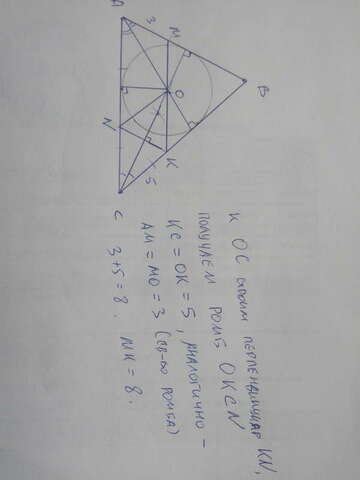 A
3
M
B
O
N
K
5
C
К ОС строим перпендикуляр KN,
получаем ромб OKCN
KC = OK = 5, аналогично –
AM = MO = 3 (св-во ромба)
3+5=8. MK = 8.